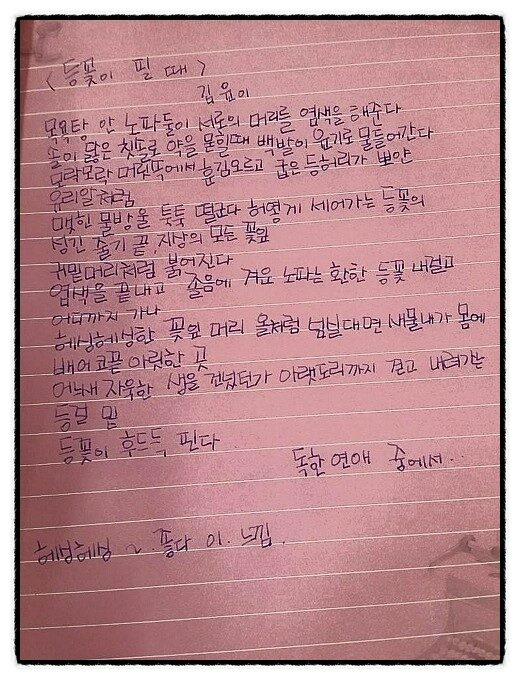 <등꽃이 필 때>
김윤이
목욕탕 안 노파둘이 서로의 머리를 염색을 해준다
솔이 닳은 칫솔로 약을 묻힐때 백발이 윤기로 물들어간다
모락모락 머릿속에서 훈김오르고 굽은 등허리가 뽀얀
유리알처럼
맺힌 물방울 툭툭 떨군다 허옇게 세어가는 등꽃의
성긴 줄기 끝, 지상의 모든 꽃잎
귀밑머리처럼 붉어진다
염색을 끝내고 졸음에 겨운 노파는 환한 등꽃 내걸고
어디까지 가나
헤싱헤싱한 꽃잎 머리 올처럼 넘실대면 새물내가 몸에
배어 코끝 아릿한 곳
어느새 자욱한 생을 건넜던가 아랫도리까지 걷고 내려가는
등걸 밑
등꽃이 후드득 핀다
독한 연애 중에서..
헤싱헤싱 ~. 좋다 이. 느낌.